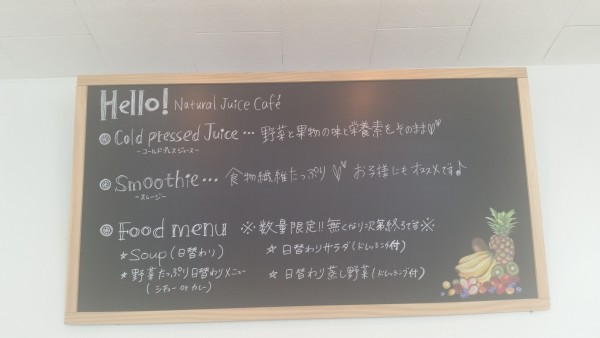 Hello! Natural Juice Café
Cold pressed Juice… 野菜と果物の味と栄養素をそのまま
-コールドプレスジュース-
Smoothie… 食物繊維たっぷり お子様にもオススメです♪
-スムージー-
Food menu ※数量限定!!無くなり次第終了です※
☆Soup(日替わり)
☆日替わりサラダ(ドレッシング付)
☆野菜たっぷり日替わりメニュー
(シチュー or カレー)
☆日替わり蒸し野菜(ドレッシング付)